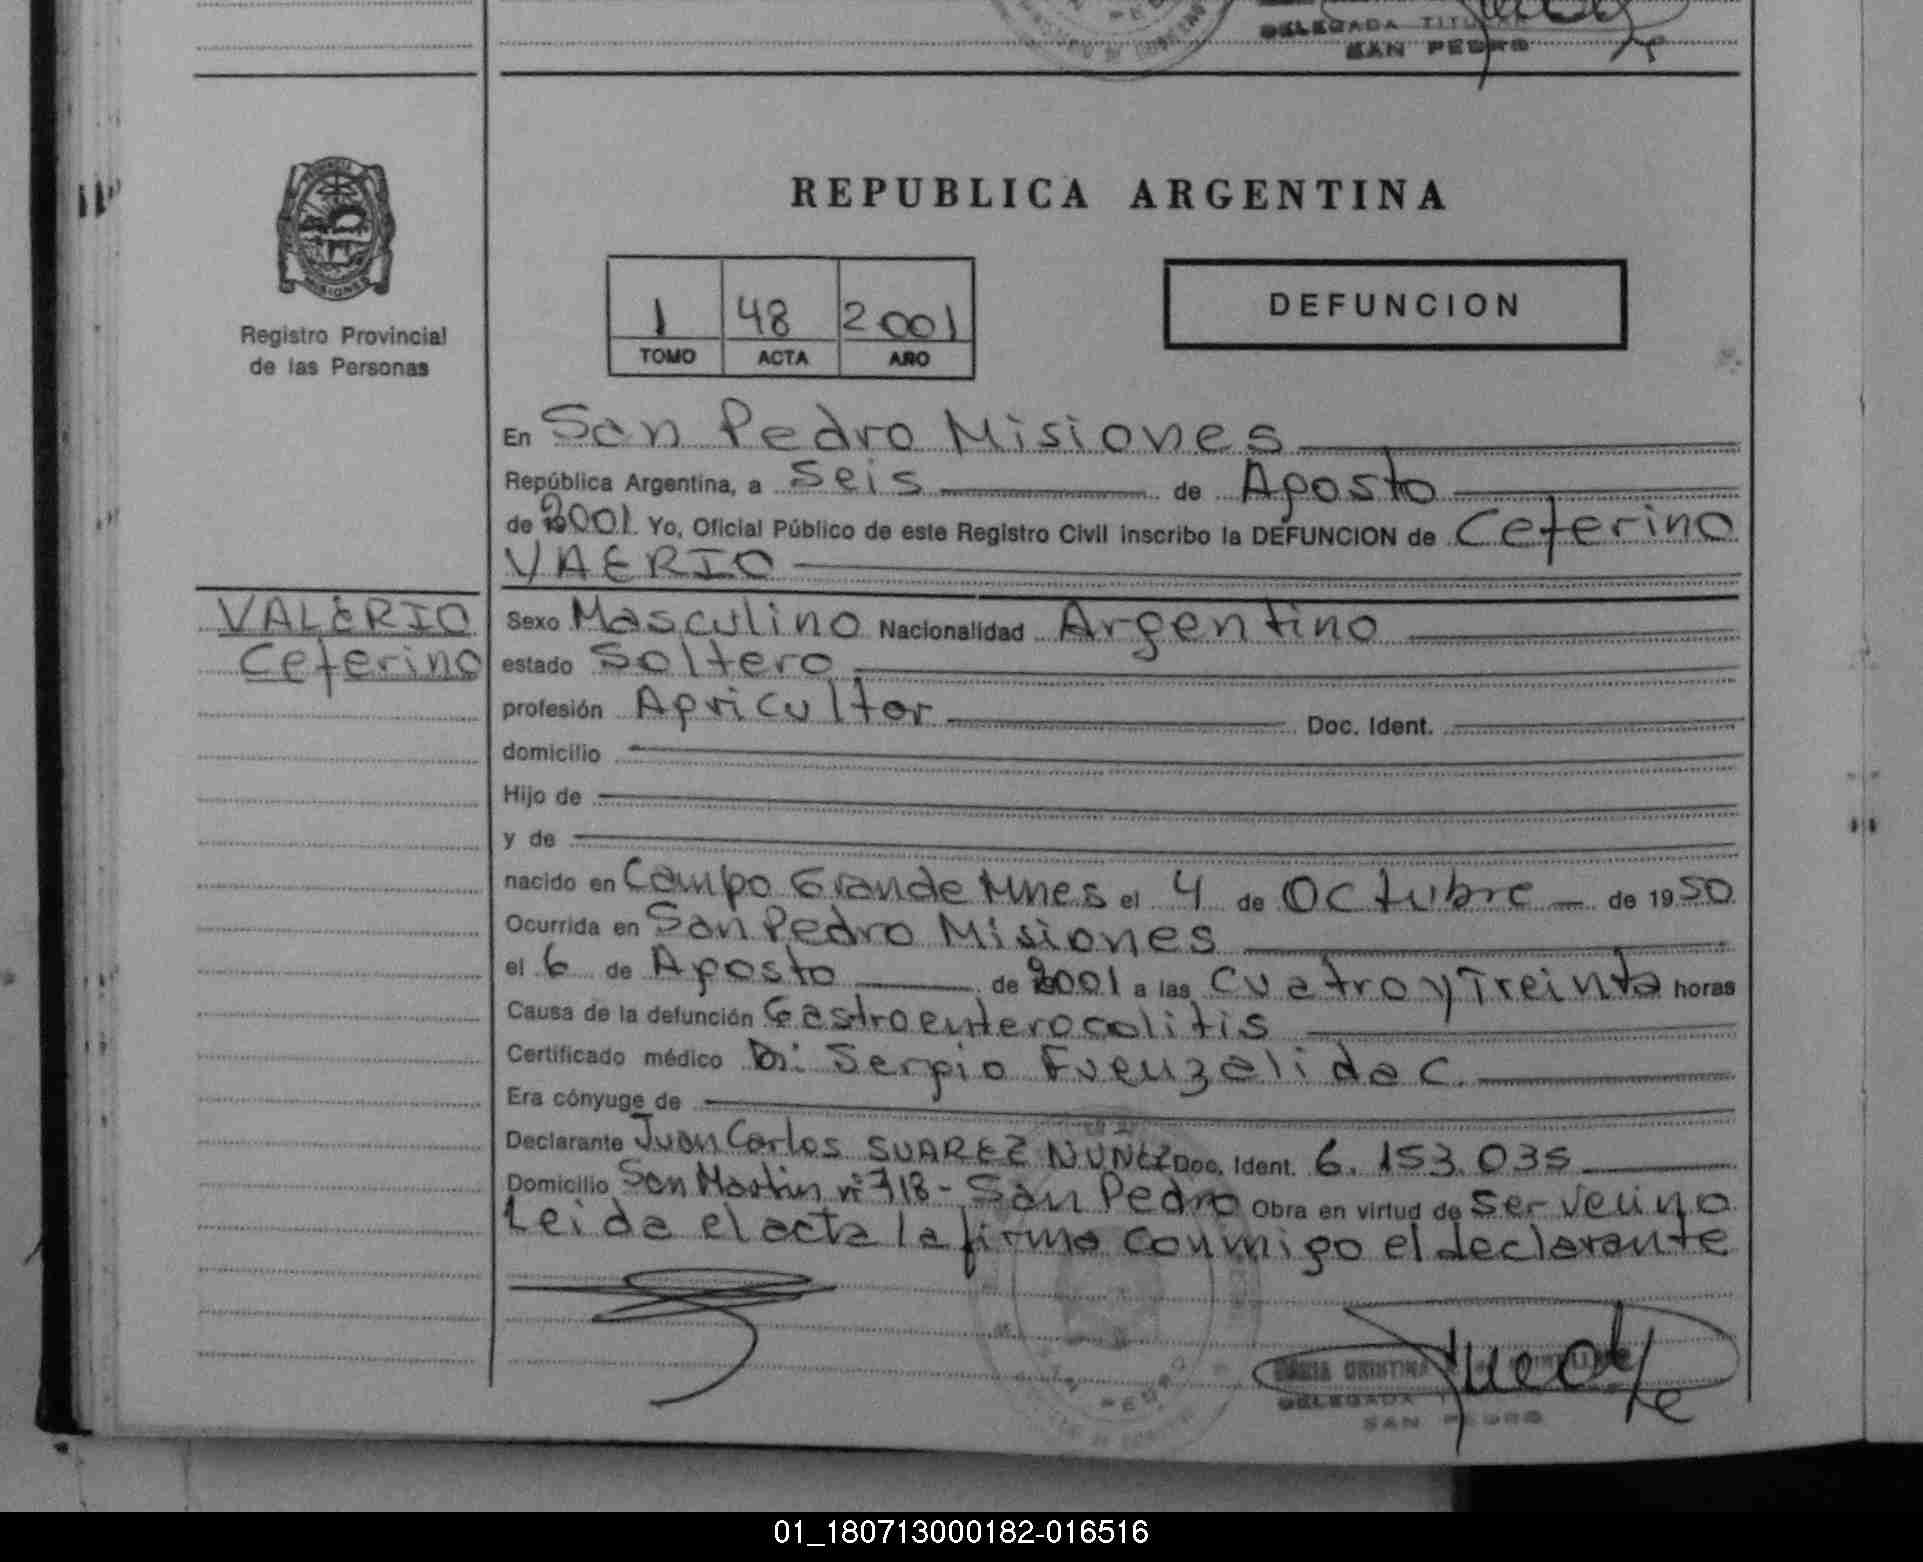 DELEGADA TITULAR
SAN PEDRO
REPUBLICA ARGENTINA
MISIONES
Registro Provincial
de las Personas
1 48 2001
TOMO ACTA AÑO
DEFUNCION
En San Pedro Misiones
República Argentina, a Seis de Agosto
de 2001 Yo, Oficial Público de este Registro Civil inscribo la DEFUNCION de Ceferino
VAERIO
VALERIO
Ceferino
Sexo Masculino Nacionalidad Argentino
estado Soltero
profesión Agricultor Doc. Ident.
domicilio
Hijo de
y de
nacido en Campo Grande Mnes el 4 de Octubre de 1950
Ocurrida en San Pedro Misiones
el 6 de Agosto de 2001 a las Cuatro y Treinta horas
Causa de la defunción Gastroenterocolitis
Certificado médico Dr: Sergio Fuenzalida C.
Era cónyuge de
Declarante Juan Carlos SUAREZ NUÑEZ Doc. Ident. 6.153.035
Domicilio San Martin nº 718 - San Pedro Obra en virtud de ser vecino
Leida el acta la firma conmigo el declarante
MARIA CRISTINA
DELEGADA
SAN PEDRO
01_180713000182-016516